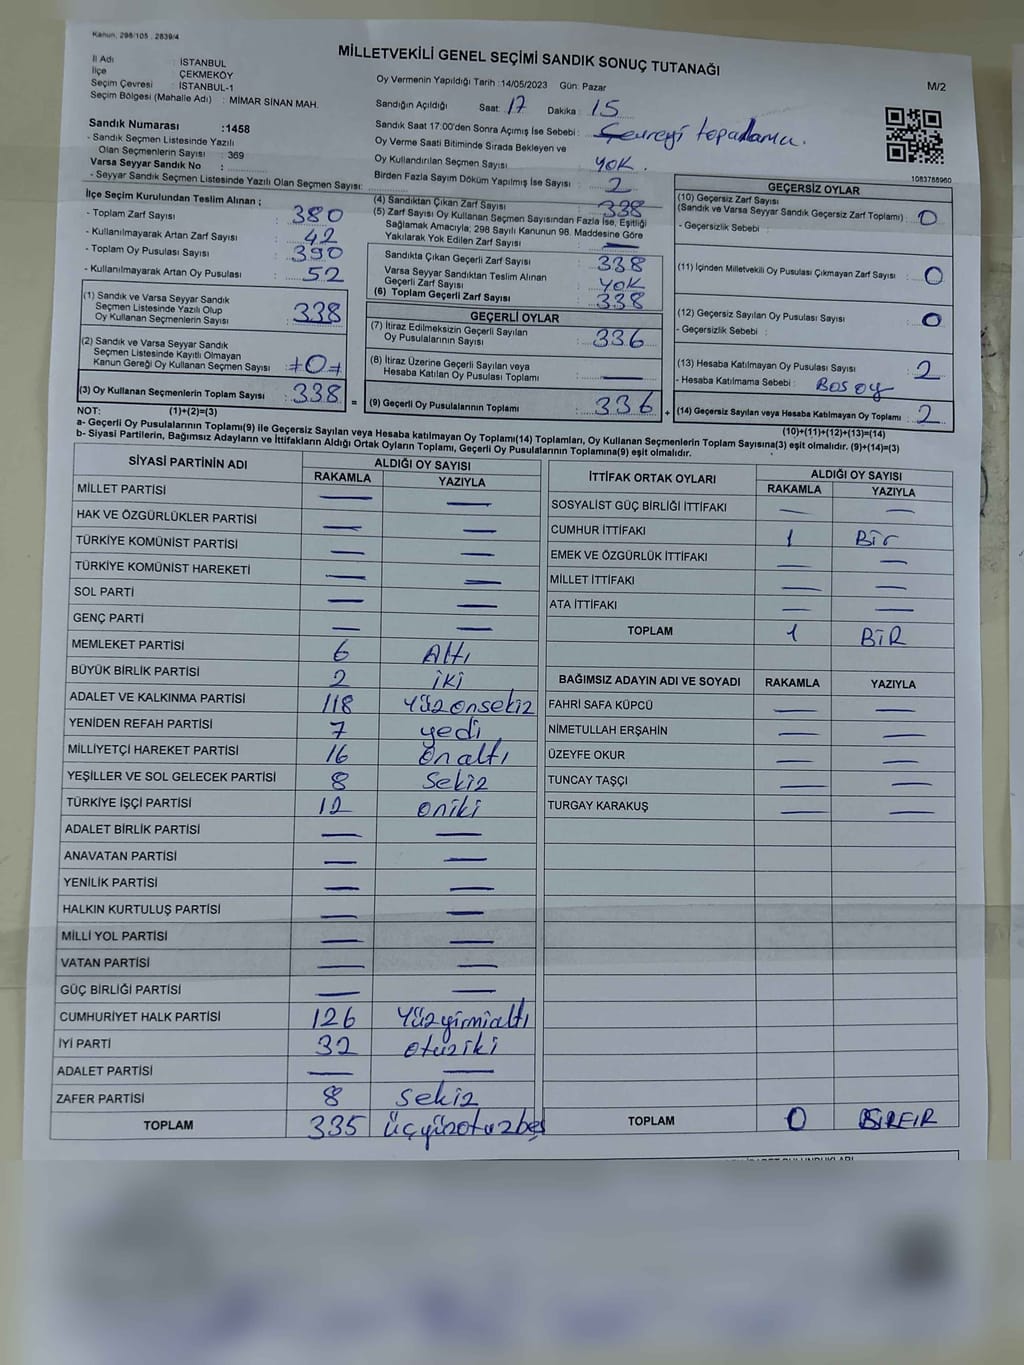 Kanun, 298/105, 2839/4
MİLLETVEKİLİ GENEL SEÇİMİ SANDIK SONUÇ TUTANAĞI
M/2
İl Adı : İSTANBUL
İlçe : ÇEKMEKÖY
Seçim Çevresi : İSTANBUL-1
Seçim Bölgesi (Mahalle Adı) : MİMAR SİNAN MAH.
Sandık Numarası :1458
- Sandık Seçmen Listesinde Yazılı
Olan Seçmenlerin Sayısı : 369
Varsa Seyyar Sandık No :
- Seyyar Sandık Seçmen Listesinde Yazılı Olan Seçmen Sayısı:
Oy Vermenin Yapıldığı Tarih :14/05/2023 Gün: Pazar
Sandığın Açıldığı Saat: 17 Dakika : 15
Sandık Saat 17:00'den Sonra Açımış İse Sebebi : Çevreyi toparlama.
Oy Verme Saati Bitiminde Sırada Bekleyen ve
Oy Kullandırılan Seçmen Sayısı : YOK.
Birden Fazla Sayım Döküm Yapılmış İse Sayısı : 2
1083768960
İlçe Seçim Kurulundan Teslim Alınan ;
- Toplam Zarf Sayısı : 380
- Kullanılmayarak Artan Zarf Sayısı : 42
- Toplam Oy Pusulası Sayısı : 390
- Kullanılmayarak Artan Oy Pusulası : 52
(1) Sandık ve Varsa Seyyar Sandık
Seçmen Listesinde Yazılı Olup
Oy Kullanan Seçmenlerin Sayısı : 338
(2) Sandık ve Varsa Seyyar Sandık
Seçmen Listesinde Kayıtlı Olmayan
Kanun Gereği Oy Kullanan Seçmen Sayısı : +0+
(3) Oy Kullanan Seçmenlerin Toplam Sayısı : 338
(4) Sandıktan Çıkan Zarf Sayısı : 338
(5) Zarf Sayısı Oy Kullanan Seçmen Sayısından Fazla İse, Eşitliği
Sağlamak Amacıyla; 298 Sayılı Kanunun 98. Maddesine Göre
Yakılarak Yok Edilen Zarf Sayısı : —
Sandıkta Çıkan Geçerli Zarf Sayısı : 338
Varsa Seyyar Sandıktan Teslim Alınan
Geçerli Zarf Sayısı : YOK
(6) Toplam Geçerli Zarf Sayısı : 338
GEÇERLİ OYLAR
(7) İtiraz Edilmeksizin Geçerli Sayılan
Oy Pusulalarının Sayısı : 336
(8) İtiraz Üzerine Geçerli Sayılan veya
Hesaba Katılan Oy Pusulası Toplamı : —
= (9) Geçerli Oy Pusulalarının Toplamı : 336
GEÇERSİZ OYLAR
(10) Geçersiz Zarf Sayısı
(Sandık ve Varsa Seyyar Sandık Geçersiz Zarf Toplamı) : 0
- Geçersizlik Sebebi :
(11) İçinden Milletvekili Oy Pusulası Çıkmayan Zarf Sayısı : 0
(12) Geçersiz Sayılan Oy Pusulası Sayısı : 0
- Geçersizlik Sebebi :
(13) Hesaba Katılmayan Oy Pusulası Sayısı : 2
- Hesaba Katılmama Sebebi : Boş oy
+ (14) Geçersiz Sayılan veya Hesaba Katılmayan Oy Toplamı : 2
NOT: (1)+(2)=(3) (10)+(11)+(12)+(13)=(14)
a- Geçerli Oy Pusulalarının Toplamı(9) ile Geçersiz Sayılan veya Hesaba katılmayan Oy Toplamı(14) Toplamları, Oy Kullanan Seçmenlerin Toplam Sayısına(3) eşit olmalıdır. (9)+(14)=(3)
b- Siyasi Partilerin, Bağımsız Adayların ve İttifakların Aldığı Ortak Oyların Toplamı, Geçerli Oy Pusulalarının Toplamına(9) eşit olmalıdır.
SİYASİ PARTİNİN ADI ALDIĞI OY SAYISI
RAKAMLA YAZIYLA
MİLLET PARTİSİ — —
HAK VE ÖZGÜRLÜKLER PARTİSİ — —
TÜRKİYE KOMÜNİST PARTİSİ — —
TÜRKİYE KOMÜNİST HAREKETİ — —
SOL PARTİ — —
GENÇ PARTİ — —
MEMLEKET PARTİSİ 6 Altı
BÜYÜK BİRLİK PARTİSİ 2 iki
ADALET VE KALKINMA PARTİSİ 118 Yüzonsekiz
YENİDEN REFAH PARTİSİ 7 yedi
MİLLİYETÇİ HAREKET PARTİSİ 16 Onaltı
YEŞİLLER VE SOL GELECEK PARTİSİ 8 Sekiz
TÜRKİYE İŞÇİ PARTİSİ 12 oniki
ADALET BİRLİK PARTİSİ — —
ANAVATAN PARTİSİ — —
YENİLİK PARTİSİ — —
HALKIN KURTULUŞ PARTİSİ — —
MİLLİ YOL PARTİSİ — —
VATAN PARTİSİ — —
GÜÇ BİRLİĞİ PARTİSİ — —
CUMHURİYET HALK PARTİSİ 126 Yüzyirmialtı
İYİ PARTİ 32 otuziki
ADALET PARTİSİ — —
ZAFER PARTİSİ 8 sekiz
TOPLAM 335 üçyüzotuzbeş
İTTİFAK ORTAK OYLARI ALDIĞI OY SAYISI
RAKAMLA YAZIYLA
SOSYALİST GÜÇ BİRLİĞİ İTTİFAKI — —
CUMHUR İTTİFAKI 1 Bir
EMEK VE ÖZGÜRLÜK İTTİFAKI — —
MİLLET İTTİFAKI — —
ATA İTTİFAKI — —
TOPLAM 1 BİR
BAĞIMSIZ ADAYIN ADI VE SOYADI RAKAMLA YAZIYLA
FAHRİ SAFA KÜPCÜ — —
NİMETULLAH ERŞAHİN — —
ÜZEYFE OKUR — —
TUNCAY TAŞÇI — —
TURGAY KARAKUŞ — —
TOPLAM 0